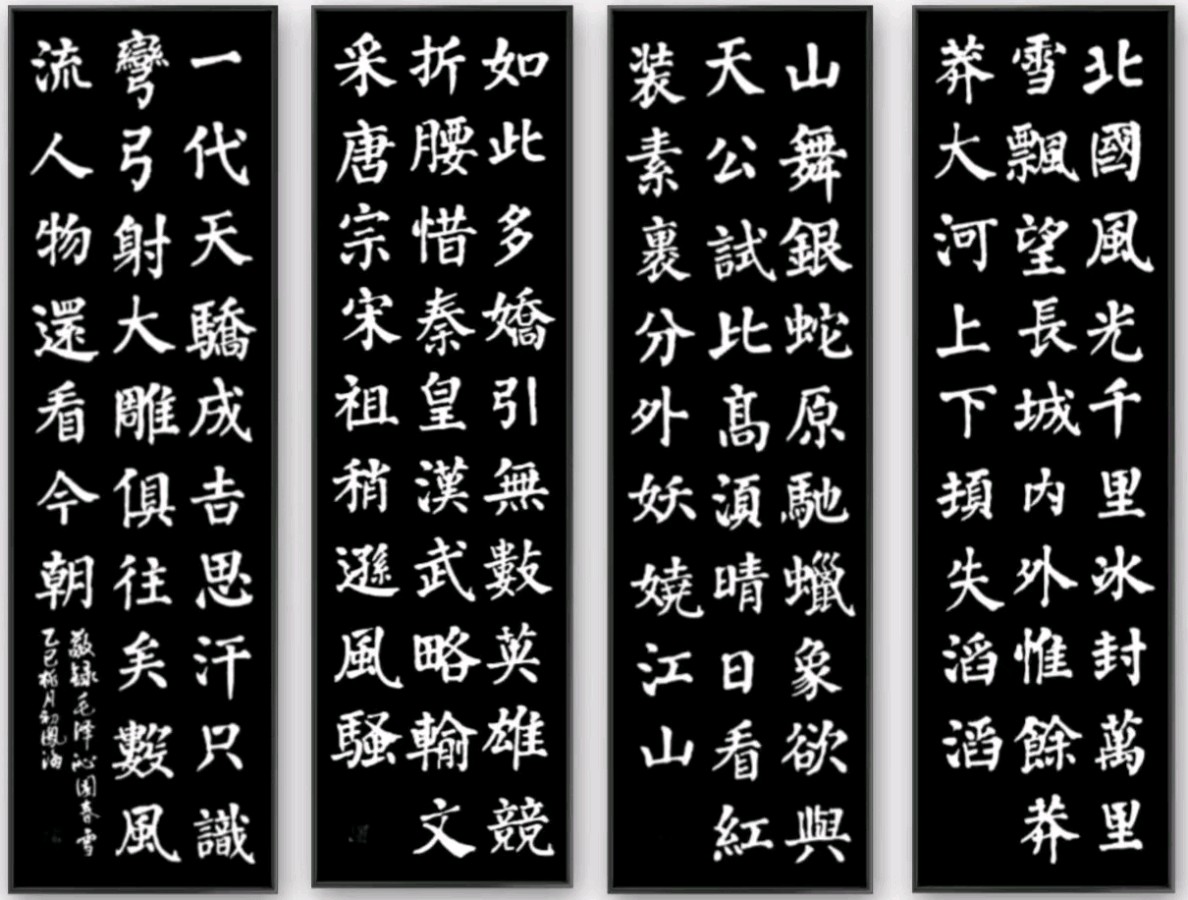 北國風光千里冰封萬里
雪飄望長城内外惟餘莽
莽大河上下頓失滔滔
山舞銀蛇原馳蠟象欲與
天公試比髙湏晴日看紅
装素裹分外妖嬈江山
如此多嬌引無數英雄競
折腰惜秦皇漢武略輸文
采唐宗宋祖稍遜風騷
一代天驕成吉思汗只識
彎弓射大雕俱往矣數風
流人物還看今朝
敬録毛泽沁園春雪
乙巳月初